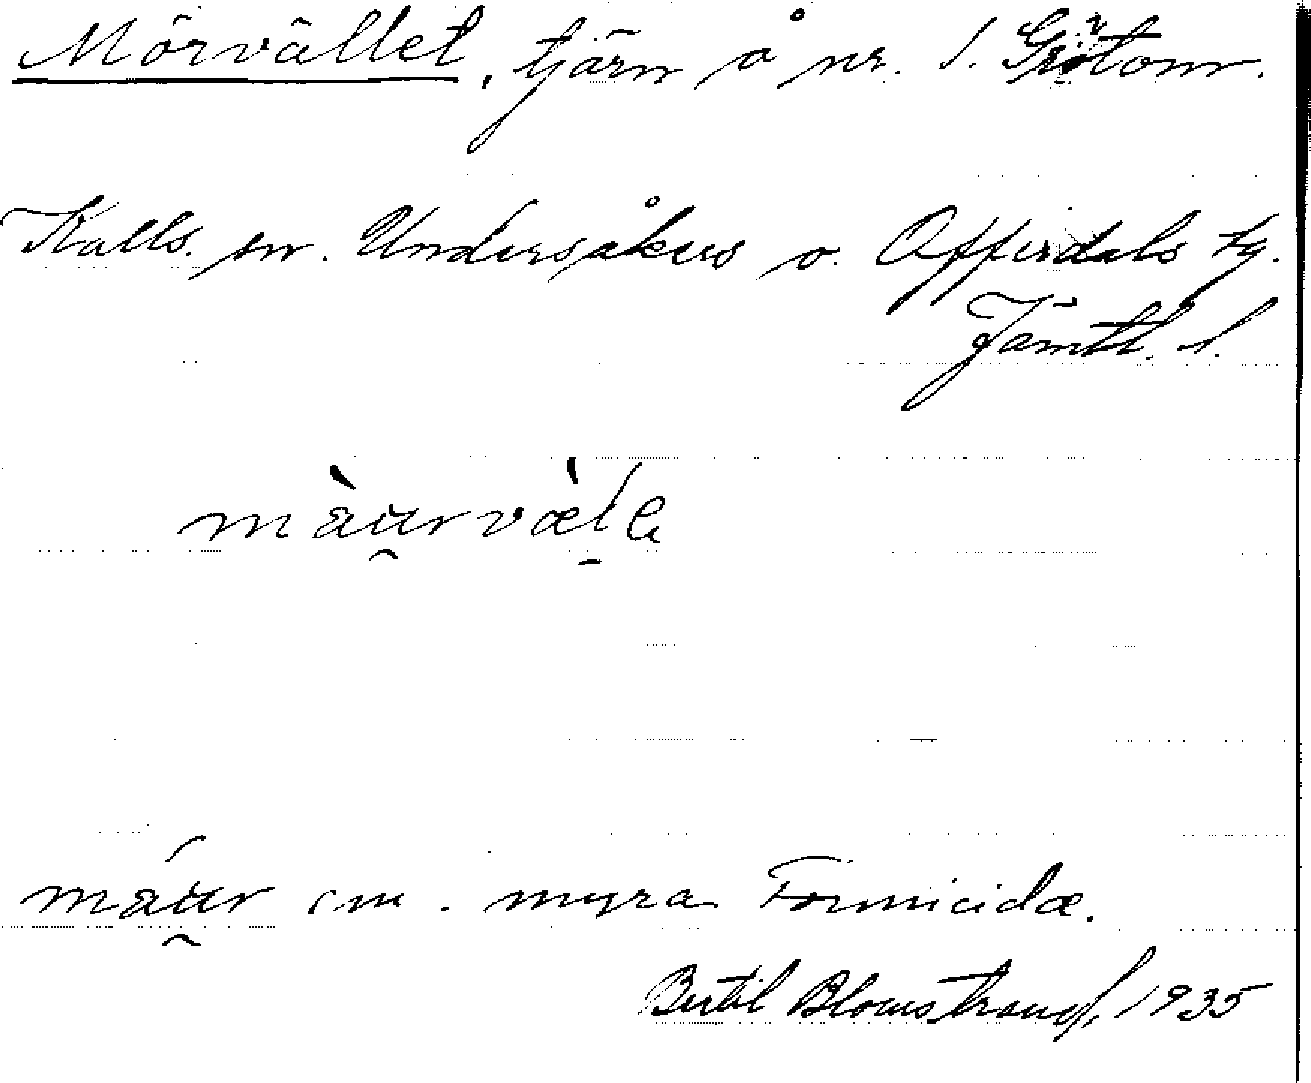 Mörvället, tjärn å nr. 1. Grötom.
Kalls. sn. Undersåkers o. Offerdals tg.
Jämtl. l.
màu̯rvæ̀lɛ
máu̯r sm. myra Formicidæ.
Bertil Blomstrand, 1935